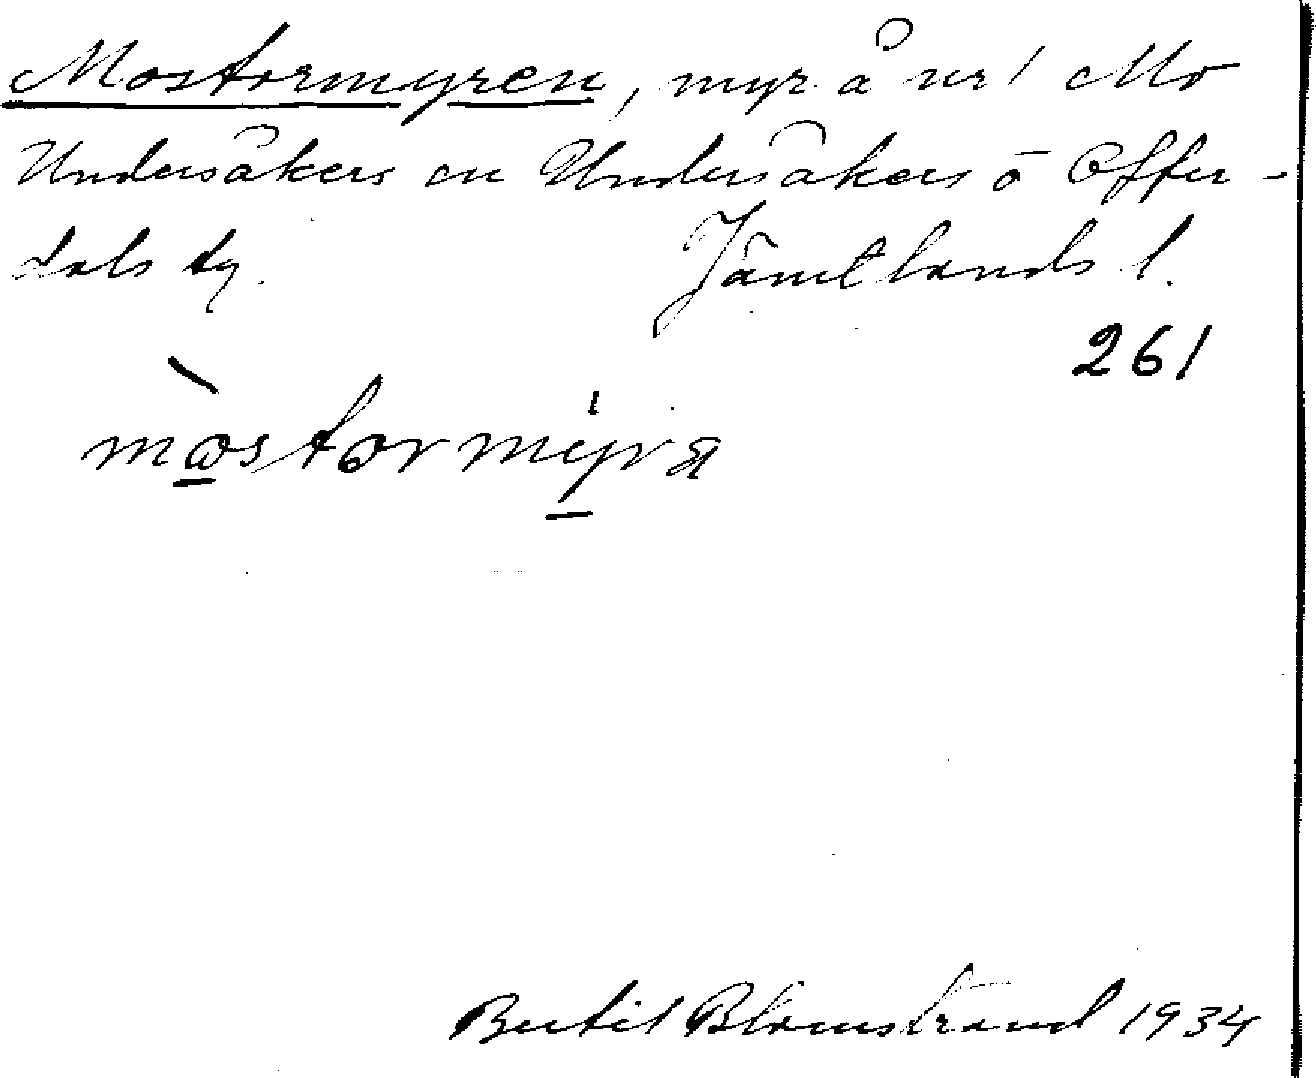 Mostormyren, myr å nr 1 Mo
Undersåkers sn Undersåkers o Offer-
dals tg. Jämtlands l.
261
mòstormyra
Bertil Blomstrand 1934